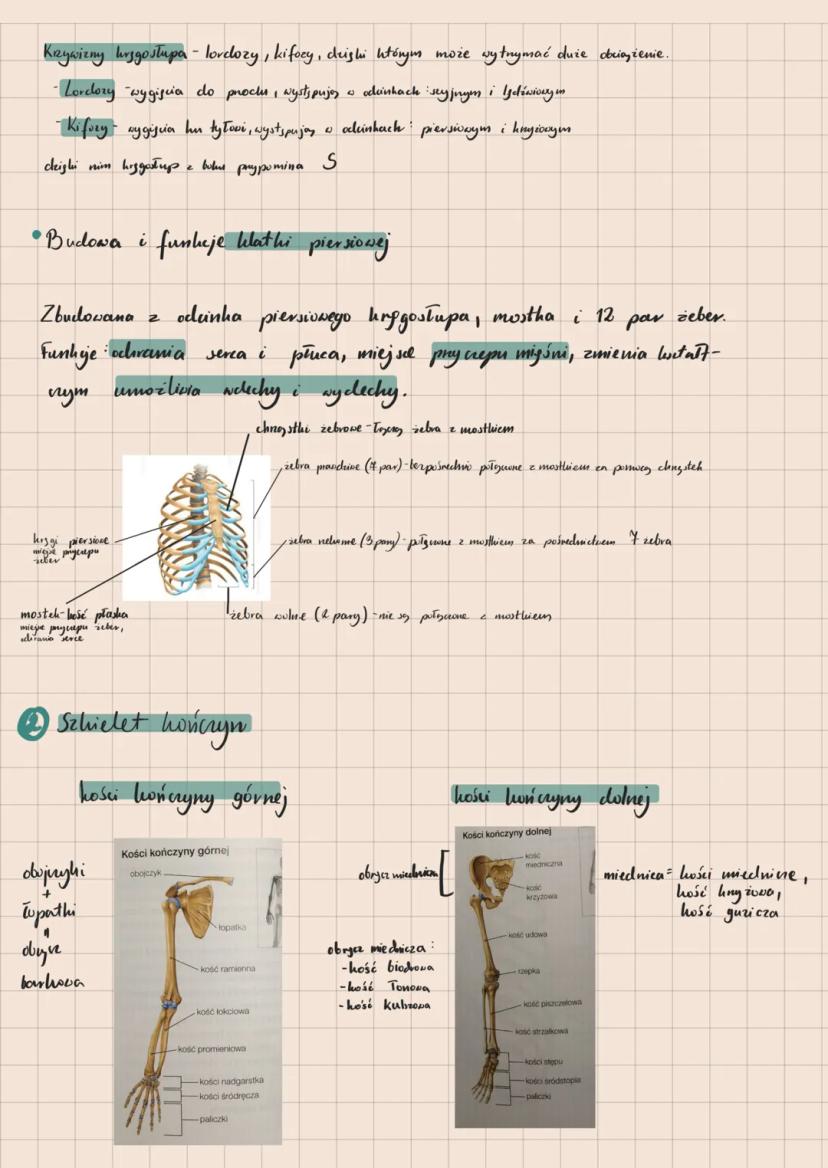 Krzywizny kręgosłupa - lordozy, kifozy, dzięki którym może wytrzymać duże obciążenie.
- Lordozy - wygięcia do przodu, występują w odcinkach: szyjnym i lędźwiowym
- Kifozy - wygięcia ku tyłowi, występują w odcinkach: piersiowym i krzyżowym
dzięki nim kręgosłup z boku przypomina S
• Budowa i funkcje klatki piersiowej
Zbudowana z odcinka piersiowego kręgosłupa, mostka i 12 par żeber.
Funkcje: ochrania serca i płuca, miejsce przyczepu mięśni, zmienia kształt-
czym umożliwia wdechy i wydechy.
chrząstki żebrowe - łączą żebra z mostkiem
żebra prawdziwe (7 par) - bezpośrednio połączone z mostkiem za pomocą chrząstek
kręgi piersiowe
miejsce przyczepu
żeber
żebra rzekome (3 pary) - połączone z mostkiem za pośrednictwem 7 żebra
mostek - kość płaska
miejsce przyczepu żeber,
ochrania serce
żebra wolne (2 pary) - nie są połączone z mostkiem
2 Szkielet kończyn
kości kończyny górnej
kości kończyny dolnej
obojczyki
+
łopatki
=
obręcz
barkowa
Kości kończyny górnej
obojczyk
łopatka
kość ramienna
kość łokciowa
kość promieniowa
kości nadgarstka
kości śródręcza
paliczki
obręcz miednicza
obręcz miednicza:
- kość biodrowa
- kość łonowa
- kość kulszowa
Kości kończyny dolnej
kość
miedniczna
kość
krzyżowa
kość udowa
rzepka
kość piszczelowa
kość strzałkowa
kości stępu
kości śródstopia
paliczki
miednica = kości miedniczne,
kość krzyżowa,
kość guziczna